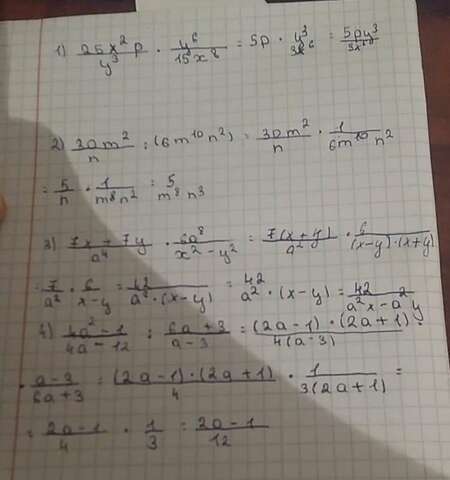 1) 25x²p/y³ · y⁶/15x⁸ = 5p · y³/3x⁶ = 5py³/3x⁶
2) 30m²/n : (6m¹⁰n²) = 30m²/n · 1/6m¹⁰n²
= 5/n · 1/m⁸n² = 5/m⁸n³
3) 7x + 7y/a⁴ · 6a⁸/x² - y² = 7(x + y)/a² · 6/(x-y)·(x+y)
= 7/a² · 6/x-y = 42/a²·(x-y) = 42/a²·(x-y) = 42/a²x-a²y
4) 4a²-1/4a-12 : 6a+3/a-3 = (2a-1)·(2a+1)/4(a-3) ·
· a-3/6a+3 = (2a-1)·(2a+1)/4 · 1/3(2a+1) =
= 2a-1/4 · 1/3 = 2a-1/12